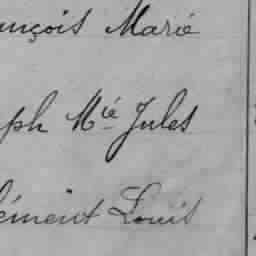 ançois Marie
ph Mié Jules
lément Louis